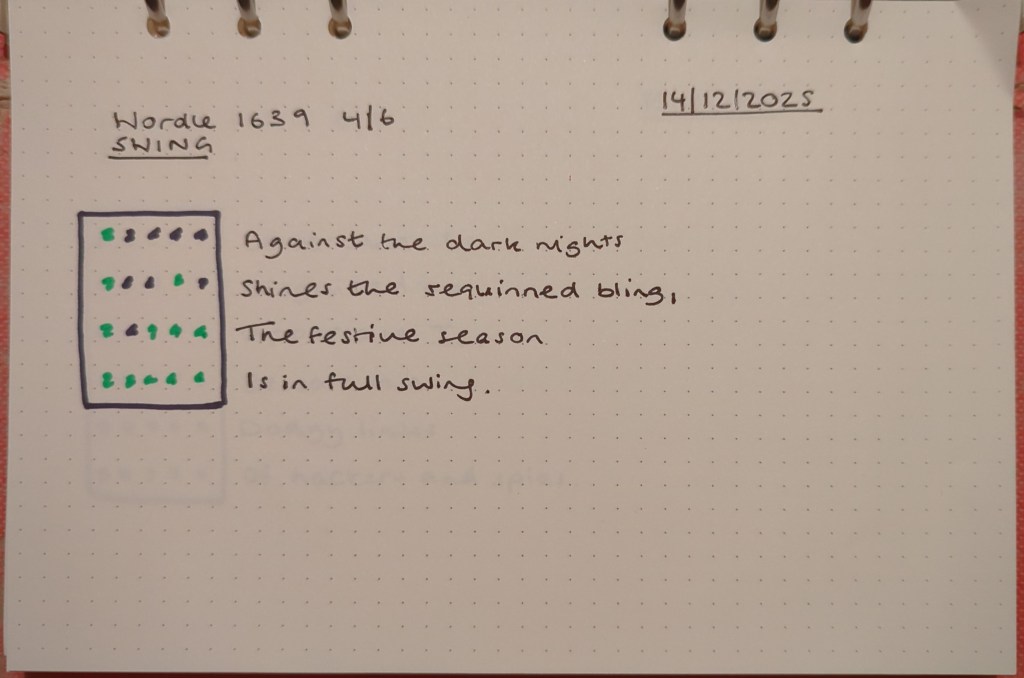 Wordle 1639 4/6
SWING
14/12/2025
Against the dark nights
Shines the sequinned bling,
The festive season
Is in full swing.